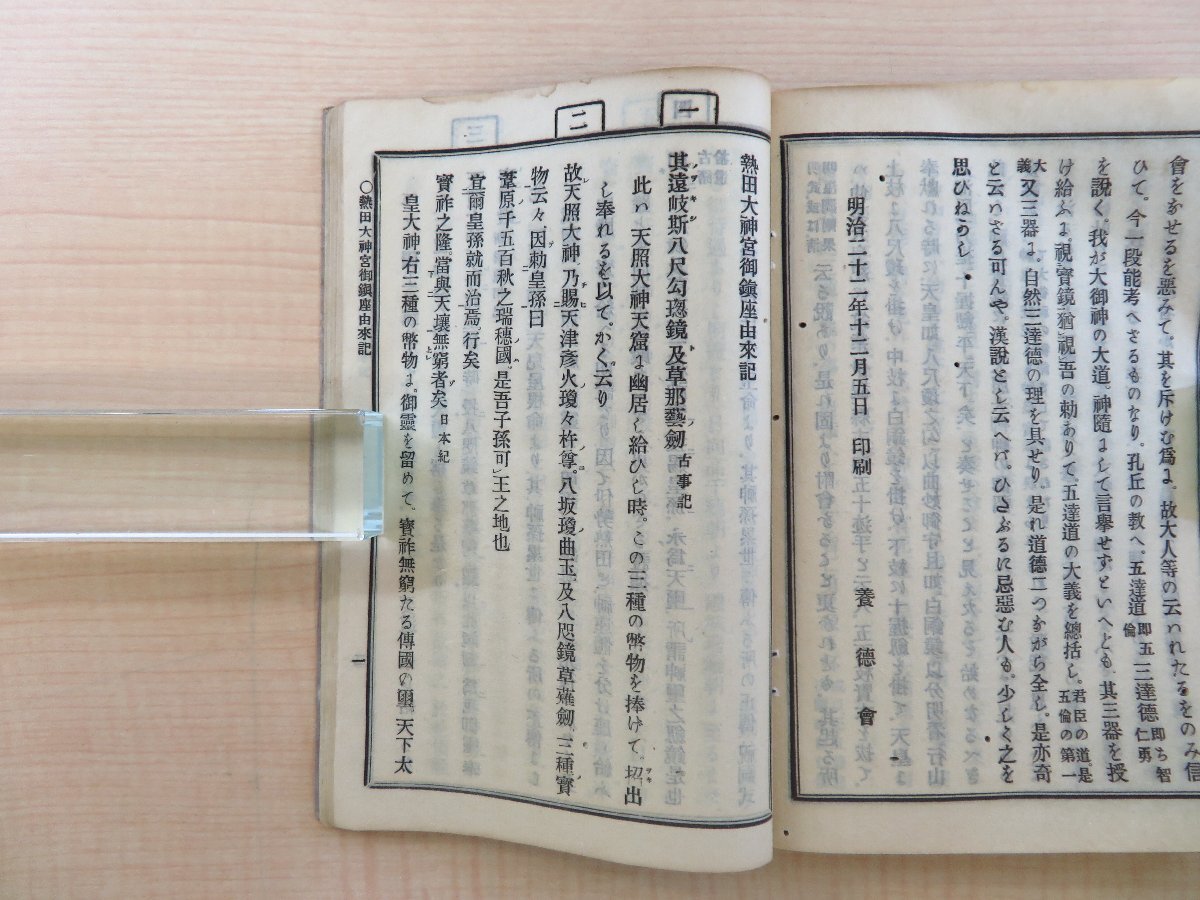 會をなせるを惡みて。其を斥けむ爲よ。故大人等の云はれたるをのみ信
ひて。今一段能考へさるものなり。孔丘の教へ。五達道 即五倫 三達德 即ち智仁勇
を說く。我が大御神の大道。神隨よして言擧せずといへとも。其三器を授
け給ふよ。視寶鏡猶視吾の勅ありて。五達道の大義を總括し。君臣の道。是五倫の第一
大義 又三器よ。自然三達德の理を具せり。是れ道德二つながら全し。是亦奇
と云はさる可んや。漢說とし云へバ。ひたふるに忌惡む人も。少しく之を
思ひねかし
明治二十二年十二月五日 印刷 養德會
一
二
三
四
熱田大神宮御鎭座由來記
其遠岐斯八尺勾璁鏡及草那藝劒 古事記
此ハ天照大神天窟よ幽居し給ひし時。この三種の幣物を捧けて。招出
し奉れるを以て。かく云り
故天照大神。乃賜天津彥火瓊々杵尊。八坂瓊曲玉。及八咫鏡草薙劒。三種寶
物云々。因勅皇孫曰
葦原千五百秋之瑞穗國。是吾子孫可王之地也
宜爾皇孫就而治焉。行矣
寶祚之隆。當與天壤無窮者矣 日本紀
皇大神。右三種の幣物よ。御靈を留めて。寶祚無窮たる傳國の璽。天下太
〇熱田大神宮御鎭座由來記
一